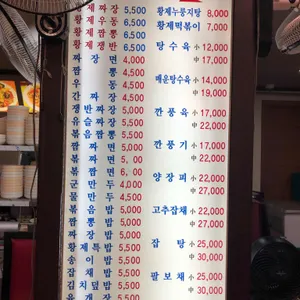 황제짜장 5,500
황제우동 6,500
황제짬뽕 6,500
황제쟁반 6,500
짜장면 4,000
짬뽕 4,500
우동 4,500
간짜장 4,500
쟁반짜장 5,000
유슬짜장 5,500
볶음짬뽕 5,500
짬짜면 5,000
볶짜면 5, 00
볶짬면 6, 00
군만두 4,000
물만두 4,500
볶음밥 5,000
짬뽕밥 5,000
짜장밥 5,000
황제특밥 5,500
송이밥 5,500
잡채밥 5,500
김치덮밥 5,500
육개장
황제누룽지탕 8,000
황제떡볶이 7,000
탕수육 小 12,000
中 17,000
매운탕수육 小 14,000
中 19,000
깐풍육 小 17,000
中 22,000
깐풍기 小 17,000
中 22,000
양장피 小 22,000
中 27,000
고추잡채 小 22,000
中 27,000
잡탕 小 25,000
中 30,000
팔보채 小 25,000
中 30,000